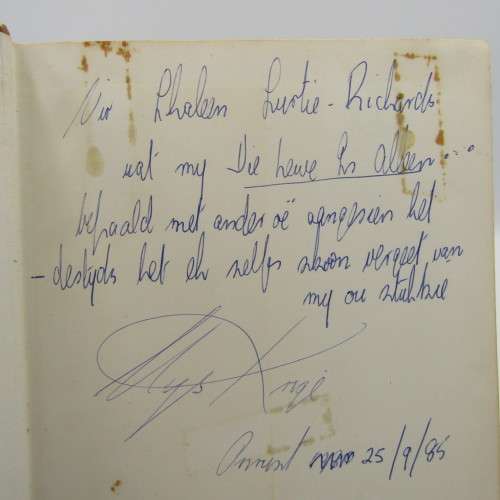 Vir Thaleen Lurtie-Richards
wat my Die Leeue En Alleen...
bepaald met ander oë aangesien het
– destyds het ek selfs skoon vergeet van
my ou stukkie
Uys Krige
Onrust 25/9/85